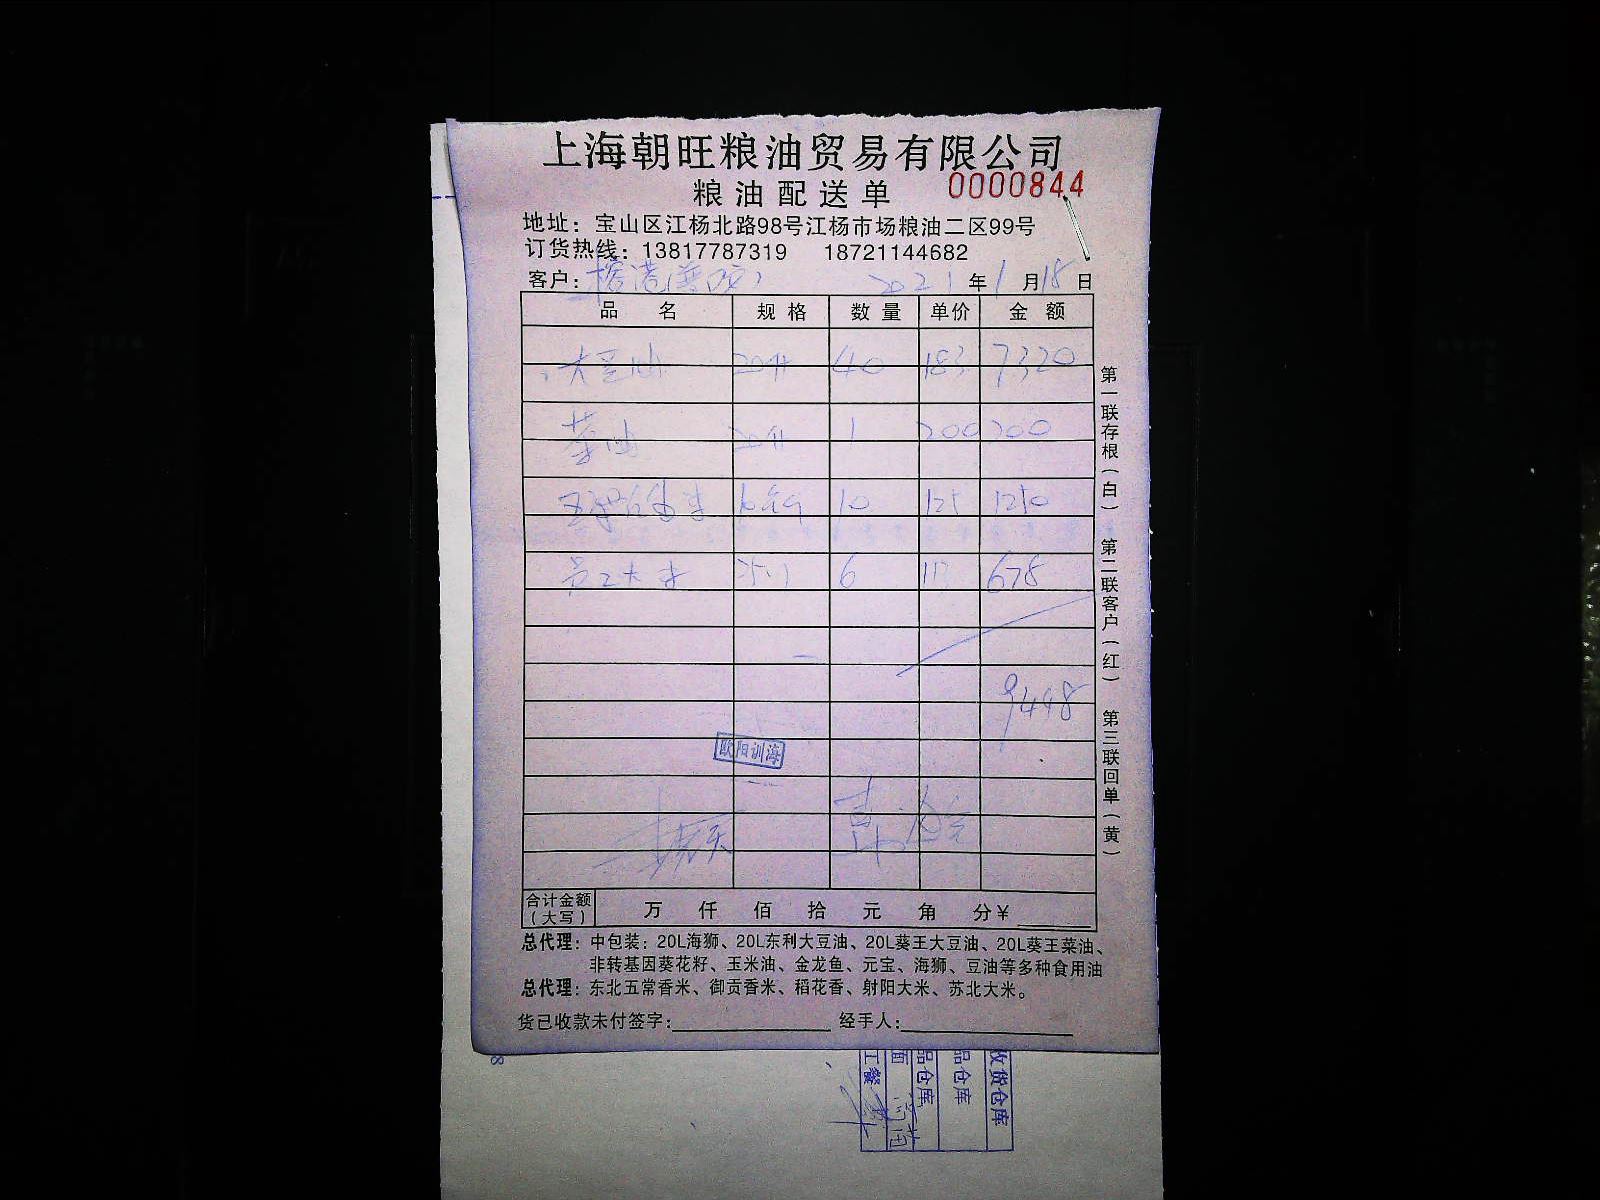 上海朝旺粮油贸易有限公司
粮油配送单 0000844
地址：宝山区江杨北路98号江杨市场粮油二区99号
订货热线：13817787319 18721144682
客户： 2021年1月18日
品名 规格 数量 单价 金额
大豆油 20升 40 183 7320
菜油 20升 1 200 200
10 125 1250
员工大米 6 113 678
9448
欧阳训海
合计金额（大写） 万 仟 佰 拾 元 角 分¥
总代理：中包装：20L海狮、20L东利大豆油、20L葵王大豆油、20L葵王菜油、
非转基因葵花籽、玉米油、金龙鱼、元宝、海狮、豆油等多种食用油
总代理：东北五常香米、御贡香米、稻花香、射阳大米、苏北大米。
货已收款未付签字： 经手人：
第一联存根（白） 第二联客户（红） 第三联回单（黄）
收货仓库
品仓库
品仓库
面
工餐